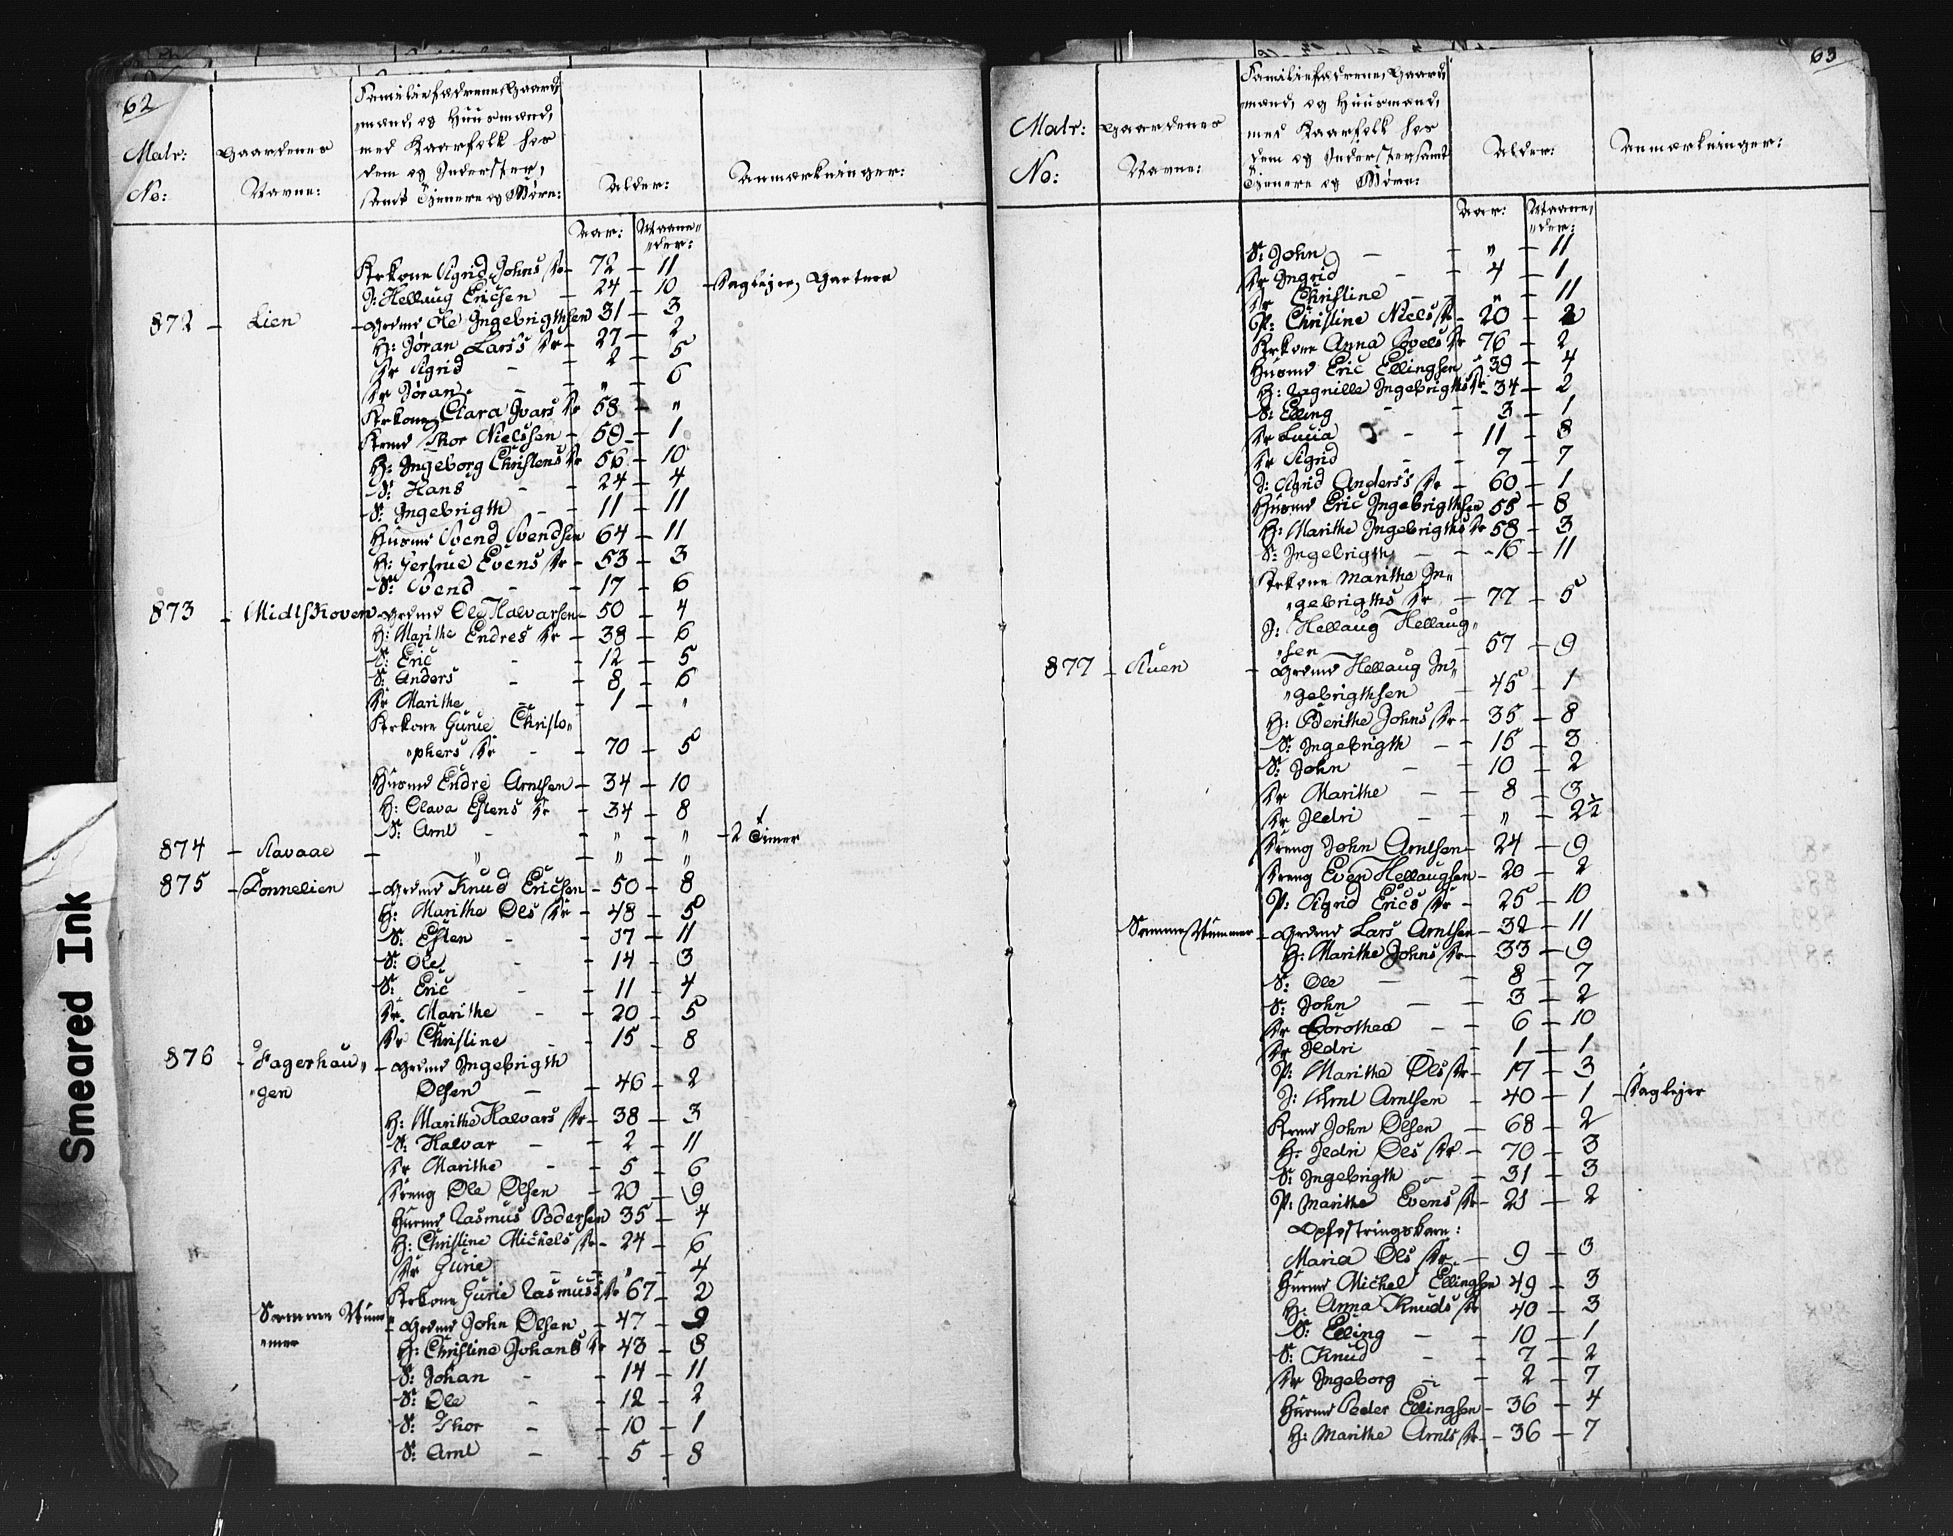 62
Matr: No:
Gaardenes Navne:
Familiefædrene, Gaard-
mænd, og Huusmænd,
med Kaarfolk hos
dem og Inderster,
samt Tjenere og Børn:
Alder:
Anmærkninger:
Aar: Maane-
der:
Krkone Sigrid Johns Dr - 72 - 11
J: Hellaug Ericsen - 24 - 10 - Daglejer, Gartner
872 - Lien - Grdmd Ole Ingebrigthsen 31 - 3
H: Jøran Larss Dr - 27 - 2
Dr Sigrid - 2 - 5
Dr Jøran - " - 6
Krkone Clara Ivars Dr 58 - "
Krmd Thor Nielssen - 59 - 1
H: Ingeborg Christens Dr 56 - 10
S: Hans - 24 - 4
S: Ingebrigth - 11 - 11
Husmd Svend Svendsen 64 - 11
H: Gertrue Evens Dr - 53 - 3
S: Svend - 17 - 6
873 - Midtskoven Grdmd Ole Halvarsen - 50 - 4
H: Marithe Endres Dr - 38 - 6
S: Eric - 12 - 5
S: Anders - 8 - 6
Dr Marithe - 1 - "
Krkone Gurie Christo-
"phers Dr - 70 - 5
Husmd Endre Arntsen - 34 - 10
H: Olava Estens Dr - 34 - 8
S: Arnt - " - " - 2 Timer
874 - Aavaae - " - " - "
875 - Tonnelien - Grdmd Knud Ericsen - 50 - 8
H: Marithe Ols Dr - 48 - 5
S: Esten - 17 - 11
S: Ole - 14 - 3
S: Eric - 11 - 4
Dr. Marithe - 20 - 5
Dr Christine - 15 - 8
876 - Fagerhau- - Grdmd Ingebrigth
"gen Olsen - 46 - 2
H: Marithe Halvars Dr - 38 - 3
S: Halvar - 2 - 11
Dr Marithe - 5 - 6
Dreng Ole Olsen - 20 - 9
Husmd Rasmus Pedersen 35 - 4
H: Christine Michels Dr - 24 - 6
Dr Gurie - " - 4
Krkone Gurie Rasmuss Dr 67 - 2
Samme Num-
"mer - Grdmd John Olsen - 47 - 9
H: Christine Johans Dr - 43 - 8
S: Johan - 14 - 11
S: Ole - 12 - 2
S: Thor - 10 - 1
S: Arnt - 5 - 8
63
Matr: No:
Gaardenes Navne:
Familiefædrene, Gaard-
mænd, og Huusmænd,
med Kaarfolk hos
dem og Inderster samt
Tjenere og Børn:
Alder:
Anmærkninger:
Aar: Maane-
"der:
S: John - " - 11
Dr Ingrid - 4 - 1
Dr Christine - " - 11
P: Christine Niels Dr - 20 - 2
Krkone Anna Povels Dr 76 - 2
Husmd Eric Ellingsen 39 - 4
H: Ragnille Ingebrigths Dr - 34 - 2
S: Elling - 3 - 1
Dr Lucia - 11 - 8
Dr Sigrid - 7 - 7
J: Sigrid Anderss Dr - 60 - 1
Husmd Eric Ingebrigthsen 55 - 8
H: Marithe Ingebrigths Dr 58 - 3
S: Ingebrigth - 16 - 11
Krkone Marithe In-
"gebrigths Dr - 77 - 5
J: Hellaug Hellaug-
"sen - 57 - 9
877 - Auen - Grdmd Hellaug In-
"gebrigthsen - 45 - 1
H: Berithe Johns Dr - 35 - 8
S: Ingebrigth - 15 - 3
S: John - 10 - 2
Dr Marithe - 8 - 3
Dr Jedri - " - 2½
Dreng John Arntsen - 24 - 9
Dreng Even Hellaugsen - 20 - 2
P: Sigrid Erics Dr - 25 - 10
Samme Nummer - Grdmd Lars Arntsen - 32 - 11
H: Marithe Johns Dr - 33 - 9
S: Ole - 8 - 7
S: John - 3 - 2
Dr Dorothea - 6 - 10
Dr Jedri - 1 - 1
P: Marithe Ols Dr - 17 - 3
J: Arnt Arntsen - 40 - 1 - Daglejer
Krmd John Olsen - 68 - 2
H: Jedri Ols Dr - 70 - 3
S: Ingebrigth - 31 - 3
P: Marithe Evens Dr - 21 - 2
Opfostringsbarn:
Maria Ols Dr - 9 - 3
Husmd Michel Ellingsen 49 - 3
H: Anna Knuds Dr 40 - 3
S: Elling - 10 - 1
S: Knud - 7 - 2
Dr Ingeborg - 2 - 7
Husmd Peder Ellingsen - 36 - 4
H: Marithe Arnts Dr - 36 - 7
Smeared Ink